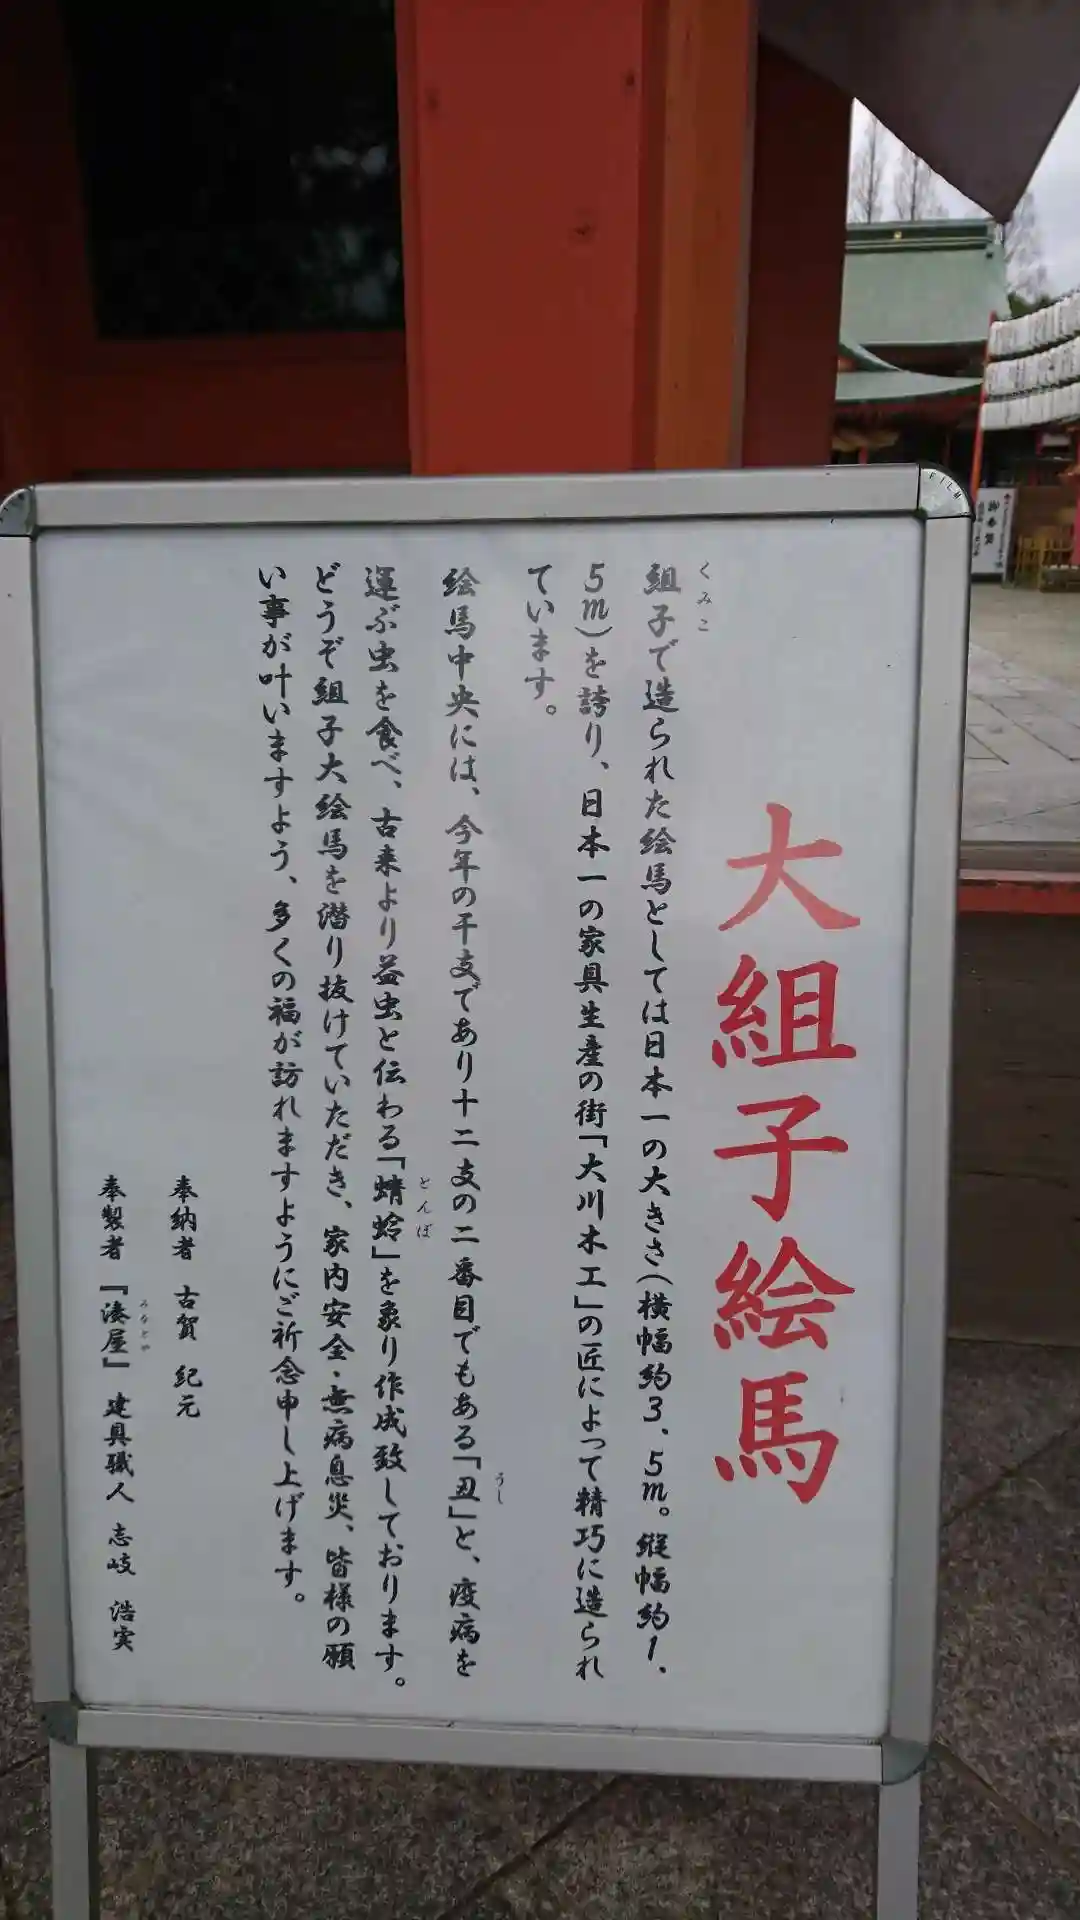 大組子絵馬
くみこ
組子で造られた絵馬としては日本一の大きさ（横幅約3、5m。縦幅約1、
5m）を誇り、日本一の家具生産の街「大川木工」の匠によって精巧に造られ
ています。
うし
絵馬中央には、今年の干支であり十二支の二番目でもある「丑」と、疫病を
とんぼ
運ぶ虫を食べ、古来より益虫と伝わる「蜻蛉」を象り作成致しております。
どうぞ組子大絵馬を潜り抜けていただき、家内安全・無病息災、皆様の願
い事が叶いますよう、多くの福が訪れますようにご祈念申し上げます。
奉納者 古賀 紀元
みなとや
奉製者 『湊屋』 建具職人 志岐 浩実
FILM